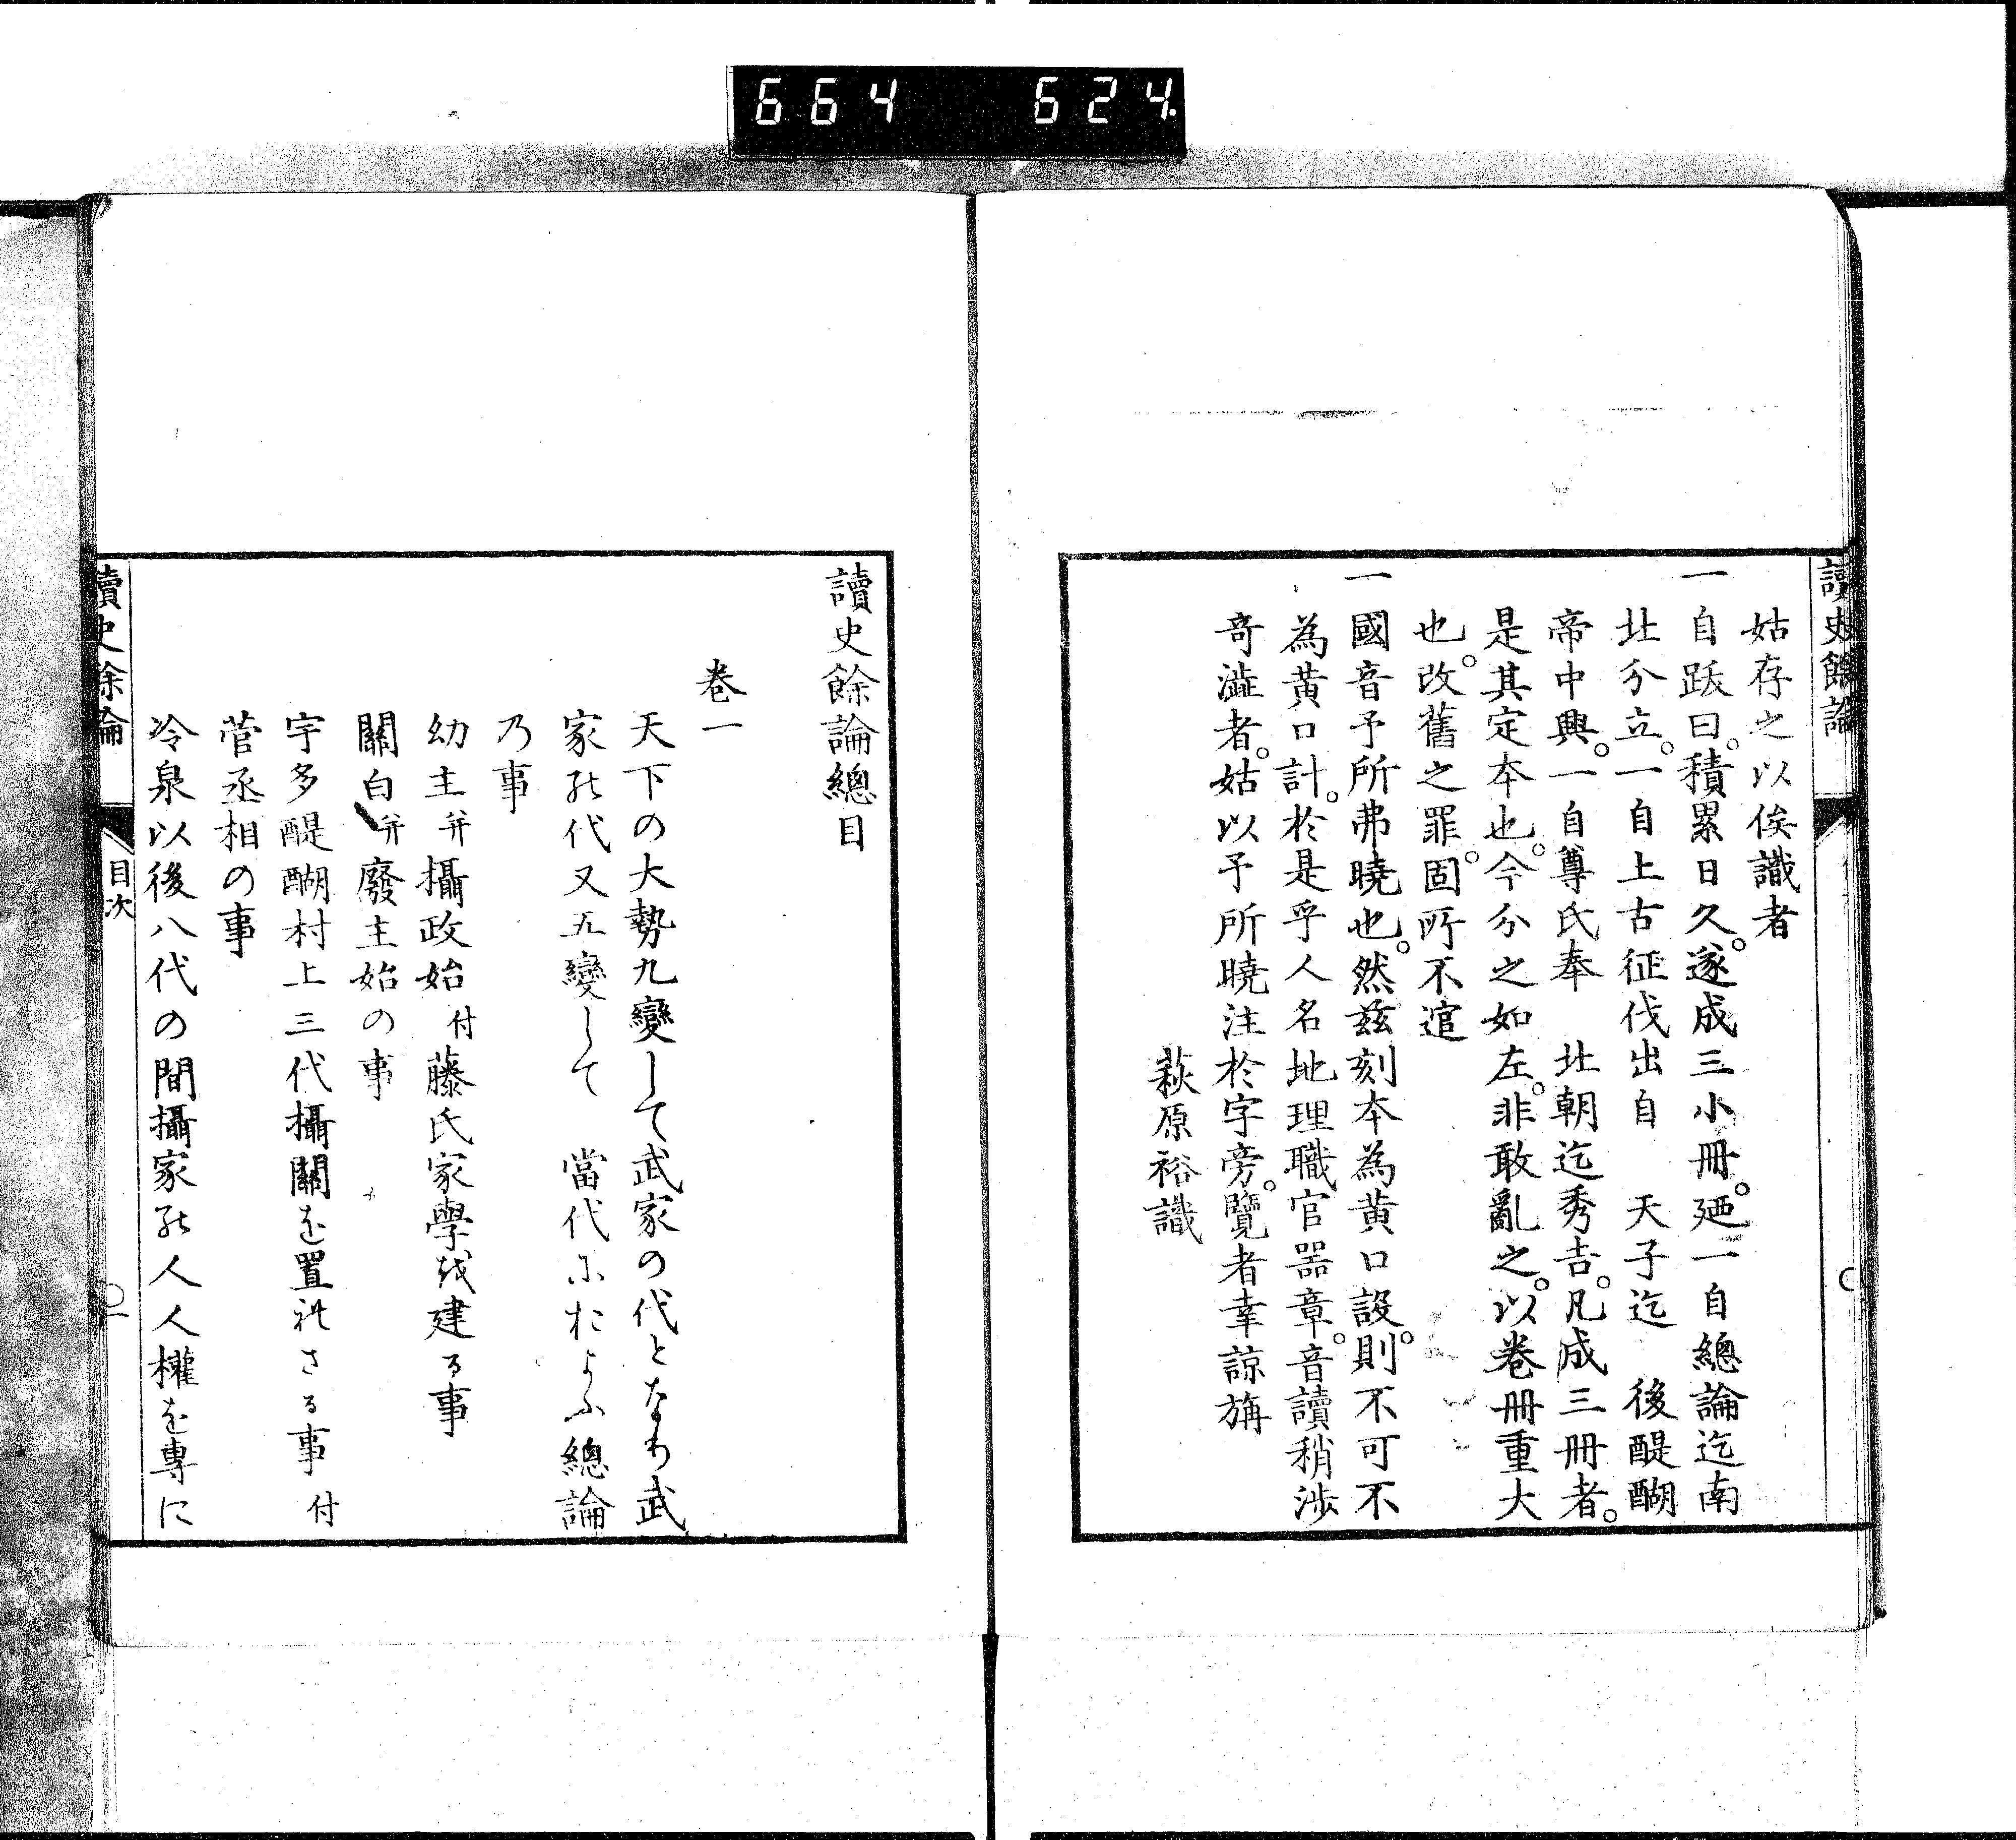 664 624.
讀史餘論
姑存之以俟識者
一自跋曰。積累日久。遂成三小冊。廼一自總論迄南
北分立。一自上古征伐出自 天子迄 後醍醐
帝中興。一自尊氏奉 北朝迄秀吉。凡成三冊者。
是其定本也。今分之如左。非敢亂之。以卷冊重大
也。改舊之罪。固所不逭
一國音予所弗曉也。然茲刻本為黃口設。則不可不
為黃口計。於是乎人名地理職官器章。音讀稍涉
奇澁者。姑以予所曉注於字旁。覽者幸諒旃
萩原裕識
讀史餘論總目
卷一
天下の大勢九變して武家の代となり武
家の代又五變して 當代におよふ總論
乃事
幼主并攝政始付藤氏家學を建る事
關白并廢主始の事
宇多醍醐村上三代攝關を置れさる事付
菅丞相の事
冷泉以後八代の間攝家の人人權を專に
讀史餘論
目次
〇一